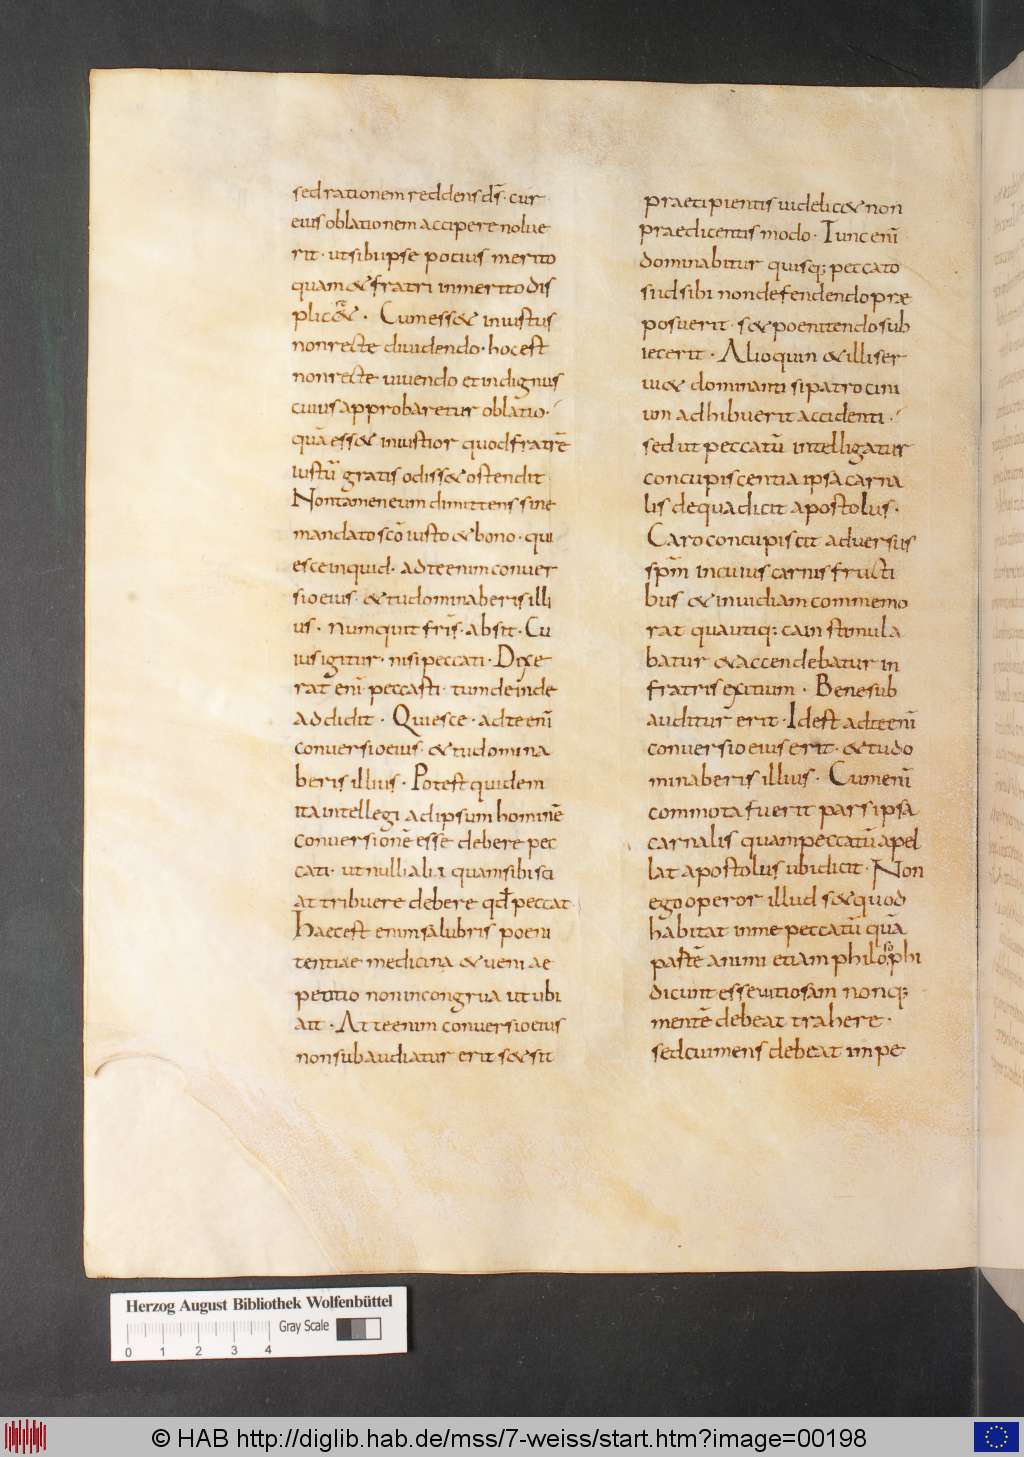 sed rationem reddens ds̄· cur
eius oblationem accipere nolue
rit· ut sibi ipse potius merito
quam & fratri inmerito dis
plic&· Cum ess& iniustus
non recte dividendo· hoc est
non recte vivendo et indignus
cuius approbaretur oblatio·
quā ess& iniustior quod fratrē
iustū gratis odiss& ostendit
Non tamen eum dimittens sine
mandato scō iusto & bono· qui
esce inquid· ad te enim conver
sio eius· & tu dominaberis illi
us· Numquit fr̄is· absit· Cu
ius igitur· nisi peccati· Dixe
rat enī peccasti· tum deinde
addidit· Quiesce· ad te enī
conversio eius· & tu domina
beris illius· Potest quidem
ita intellegi ad ipsum hominē
conversionē esse debere pec
cati· ut nulli alii quam sibi sci
at tribuere debere qd̄ peccat
Haec est enim salubris poeni
tentiae medicina & veniae
petitio non incongrua ut ubi
ait· At te enim conversio eius
non subaudiatur erit s& sit
praecipientis videlic& non
praedicentis modo· Tunc enī
dominabitur quisq; peccato
si id sibi non defendendo præ
posuerit· s& poenitendo sub
iecerit· Alioquin & illi ser
vi& dominanti si patrocini
um adhibuerit accidenti·
sed ut peccatū intelligatur
concupiscentia ipsa carna
lis de qua dicit apostolus·
Caro concupiscit adversus
spm̄ in cuius carnis fructi
bus & invidiam commemo
rat qua utiq; cain stimula
batur & accendebatur in
fratris exitium· Bene sub
auditur erit· Id est ad te enī
conversio eius erit· & tu do
minaberis illius· Cum enī
commota fuerit pars ipsa
carnalis quam peccatū apel
lat apostolus ubi dicit· Non
ego operor illud s& quod
habitat in me peccatū quā
partē animi etiam philosophi
dicunt esse vitiosam non q;
mentē debeat trahere·
sed cui mens debeat impe
Herzog August Bibliothek Wolfenbüttel
Gray Scale
0 1 2 3 4
© HAB http://diglib.hab.de/mss/7-weiss/start.htm?image=00198